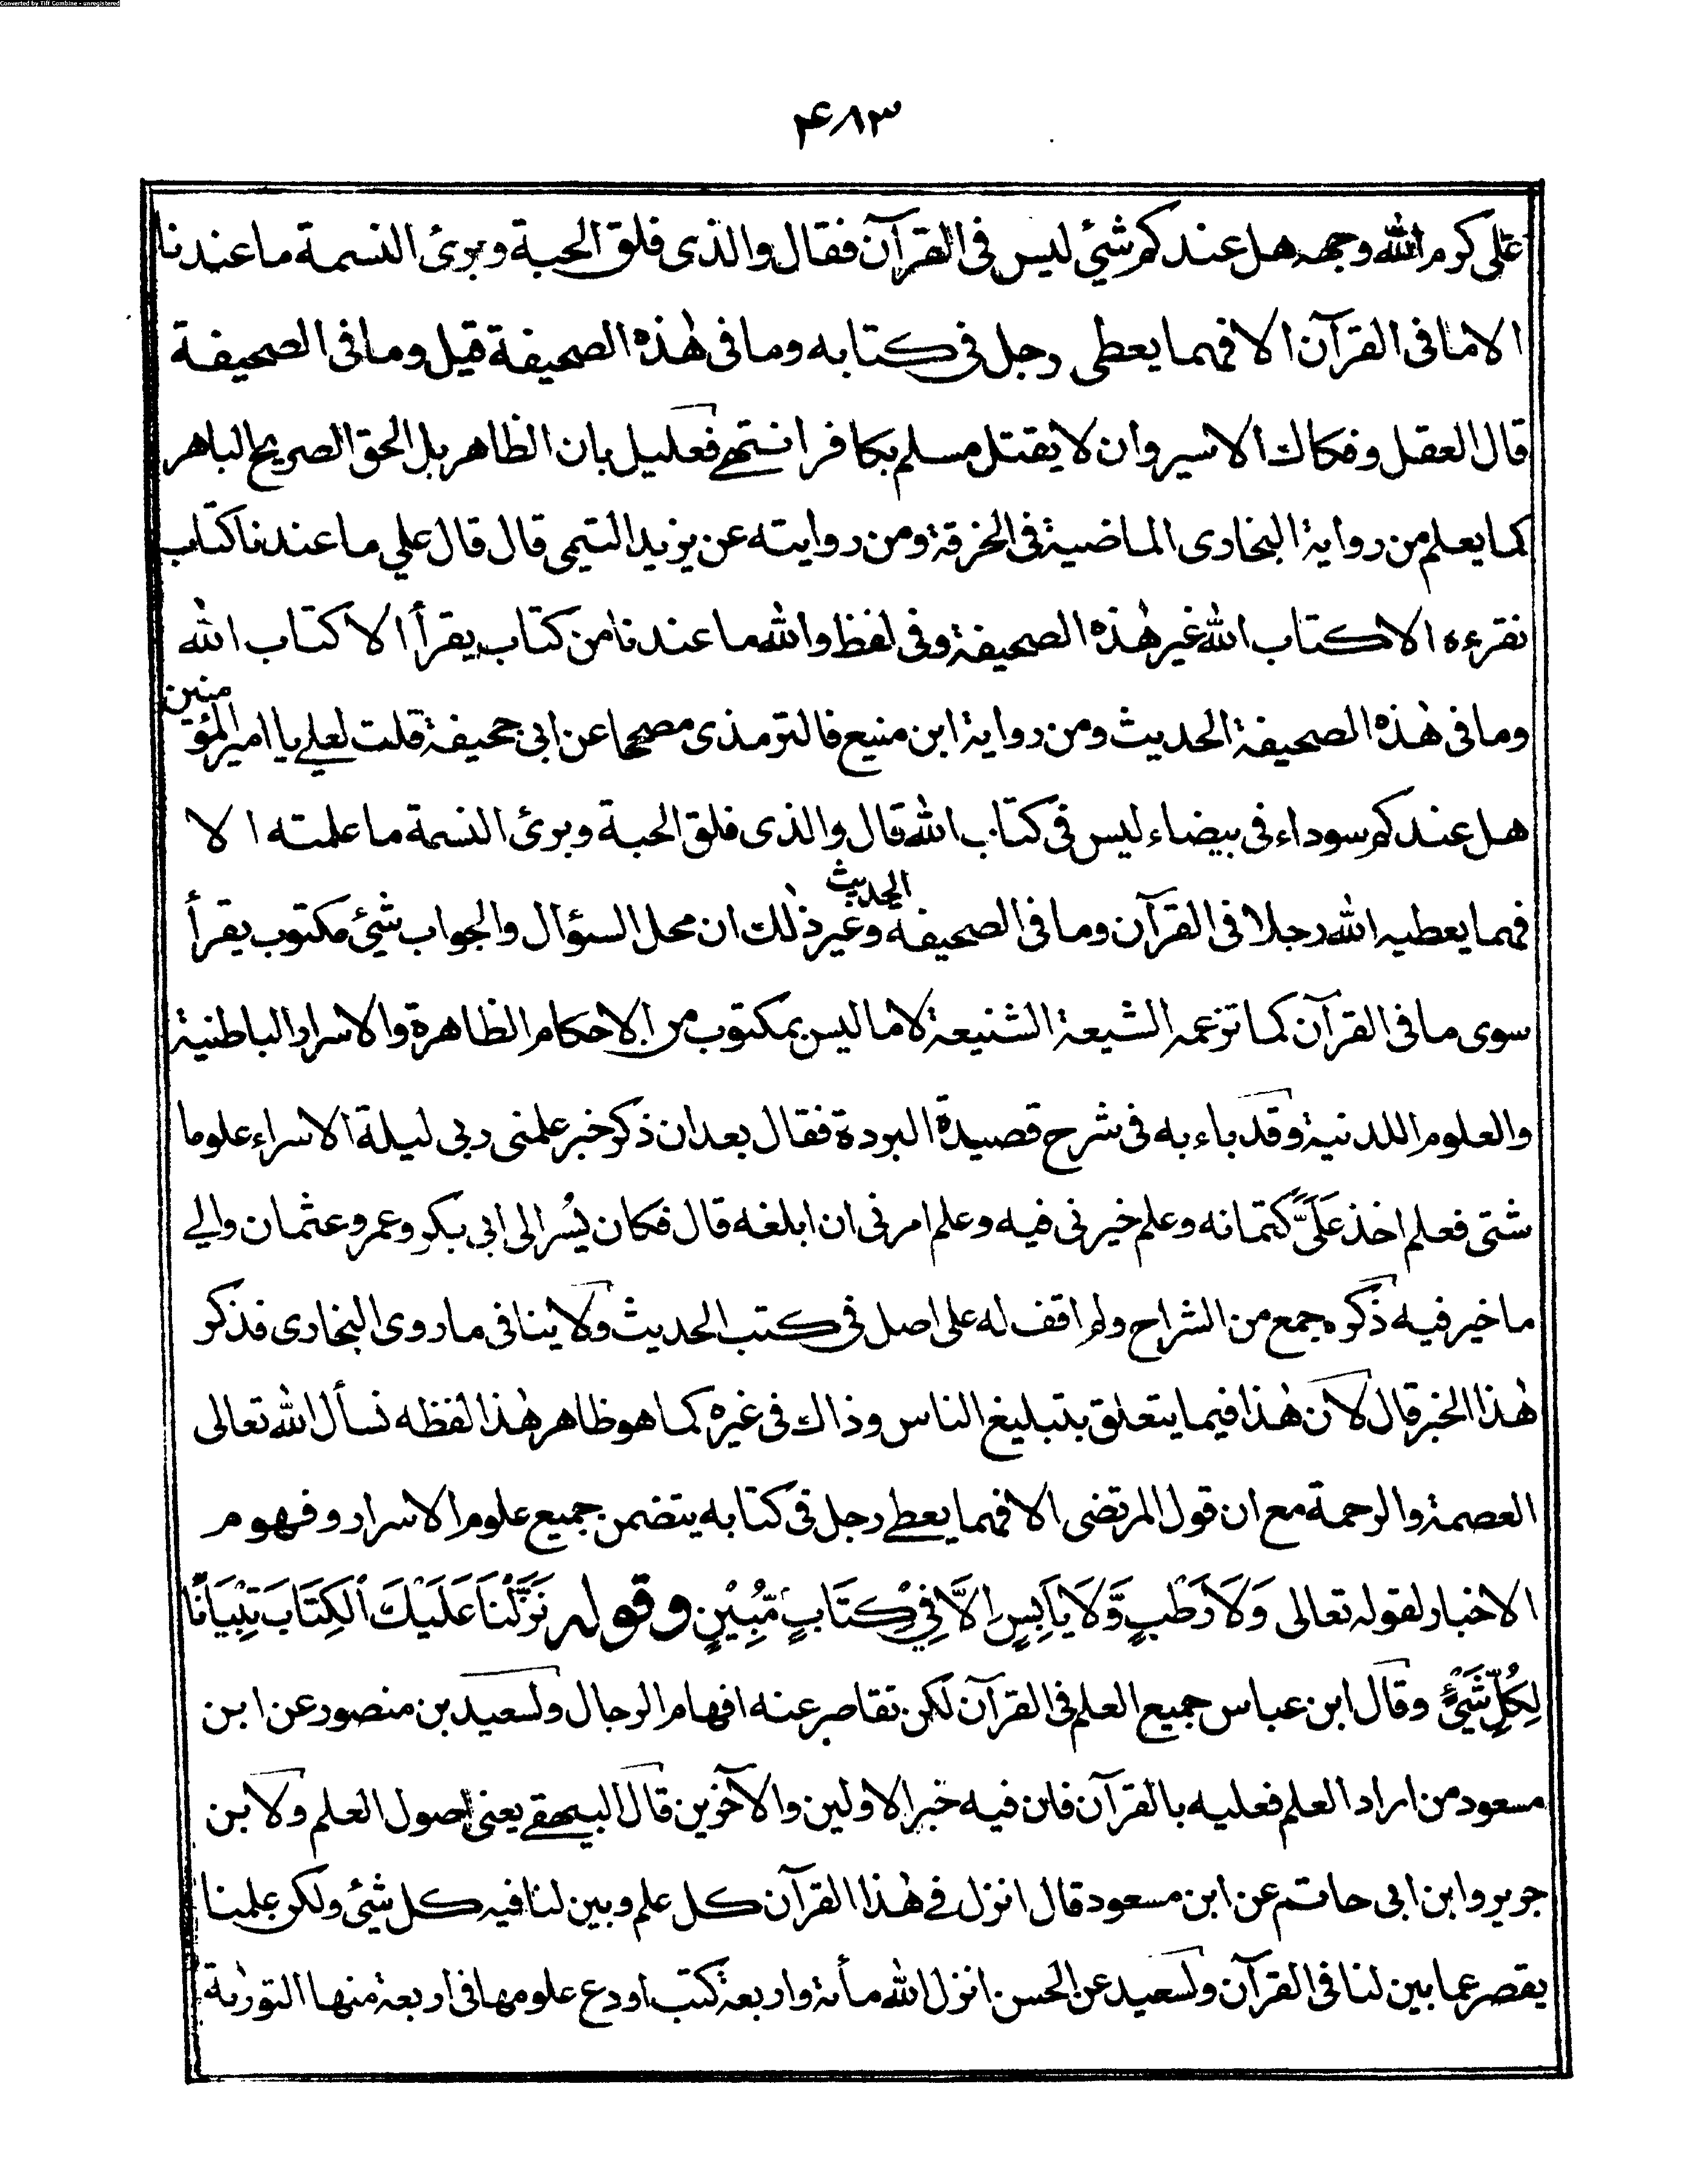 Converted by Tiff Combine - unregistered
۴۸۳
على كرم الله وجهه هل عندكم شئ ليس فى القرآن فقال والذى فلق الحبة وبرئ النسمة ما عندنا
الا ما فى القرآن الا فهما يعطى رجل فى كتابه وما فى هٰذه الصحيفة قيل وما فى الصحيفة
قال العقل وفكاك الاسير وان لا يقتل مسلم بكافر انتهے فعليل بان الظاهر بل الحق الصريح الباهر
كما يعلم من رواية البخارى الماضية فى الخرقة ومن روايته عن يزيد التيمى قال قال علي ما عندنا كتاب
نقرءه الا كتاب الله غير هٰذه الصحيفة وفى لفظ والله ما عندنا من كتاب يقرأ الا كتاب الله
وما فى هٰذه الصحيفة الحديث ومن رواية ابن منيع فالترمذى مصححا عن ابى جحيفة قلت لعلے يا امير المؤمنين
هل عندكم سوداء فى بيضاء ليس فى كتاب الله قال والذى فلق الحبة وبرئ النسمة ما علمته الا
فهما يعطيه الله رجلا فى القرآن وما فى الصحيفة الحديث وغير ذٰلك ان محل السؤال والجواب شئ مكتوب يقرأ
سوى ما فى القرآن كما تزعمه الشيعة الشنيعة لا ما ليس بمكتوب من الاحكام الظاهرة والاسرار الباطنية
والعلوم اللدنية وقد باء به فى شرح قصيدة البردة فقال بعد ان ذكر خبر علمنى ربى ليلة الاسراء علوما
شتى فعلم اخذ عَلَىَّ كتمانه وعلم خيرنى فيه وعلم امرنى ان ابلغه قال فكان يُسر الى ابى بكر وعمر وعثمان والے
ما خير فيه ذكره جمع من الشراح ولم اقف له على اصل فى كتب الحديث ولا ينافى ما روى البخارى فذكر
هٰذا الخبر قال لان هٰذا فيما يتعلق بتبليغ الناس وذاك فى غيره كما هو ظاهر هٰذا لفظه نسأل الله تعالى
العصمة والرحمة مع ان قول المرتضى الا فهما يعطے رجل فى كتابه يتضمن جميع علوم الاسرار وفهوم
الاخبار لقوله تعالى وَلَا رَطْبٍ وَّلَا يَابِسٍ اِلَّا فِىْ كِتَابٍ مُّبِيْنٍ وقوله نَزَّلْنَا عَلَيْكَ الْكِتَابَ تِبْيَانًا
لِكُلِّ شَىْءٍ وقال ابن عباس جميع العلم فى القرآن لكن تقاصر عنه افهام الرجال ولسعيد بن منصور عن ابن
مسعود من اراد العلم فعليه بالقرآن فان فيه خبر الاولين والآخرين قال البيهقے يعنى اصول العلم ولابن
جرير وابن ابى حاتم عن ابن مسعود قال انزل فے هٰذا القرآن كل علم وبين لنا فيه كل شئ ولكن علمنا
يقصر عما بين لنا فى القرآن ولسعيد عن الحسن انزل الله مأة واربعة كتب اودع علومها فى اربعة منها التورٰية